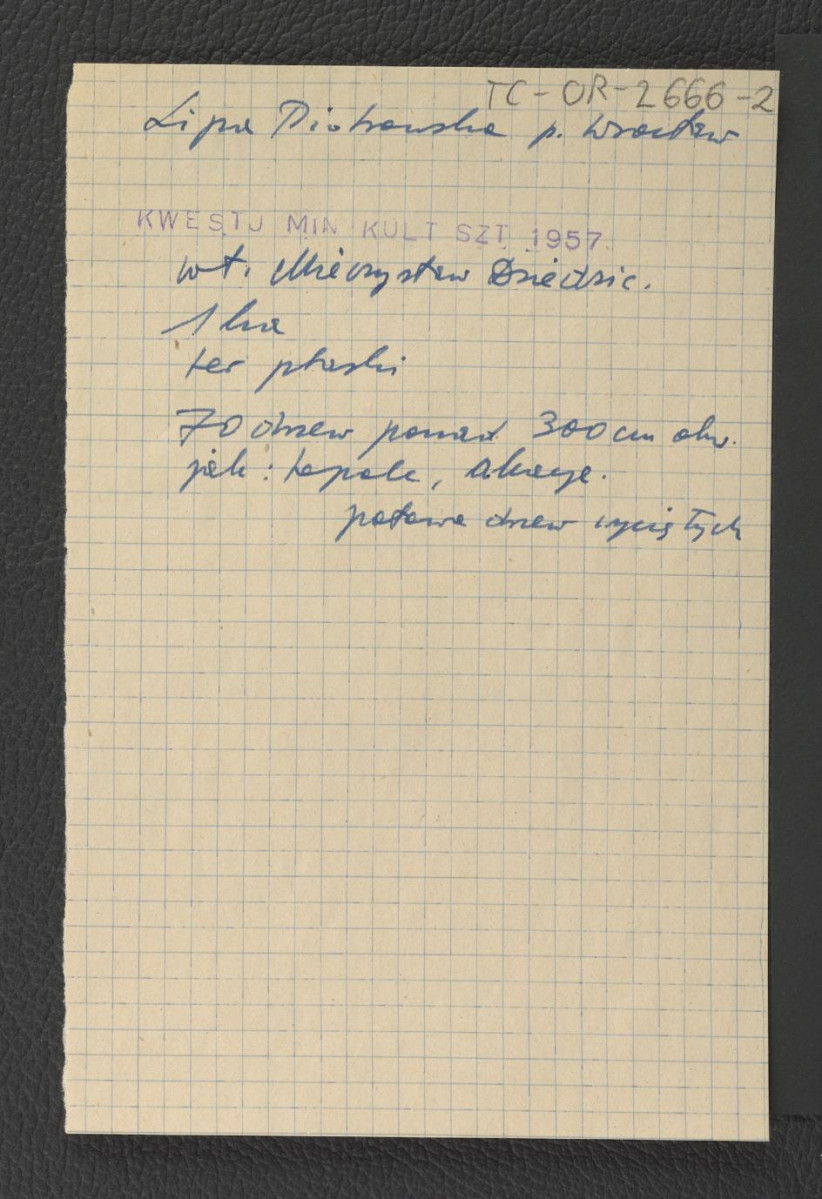 TC-OR-2666-2
Lipa Piotrowska p. Wrocław
KWESTJ MIN KULT SZT 1957
wł. Mieczysław Dziedzic.
1 ha
ter płaski
70 drzew ponad 300 cm obw.
jak: topole, akacje.
połowa drzew wyciętych